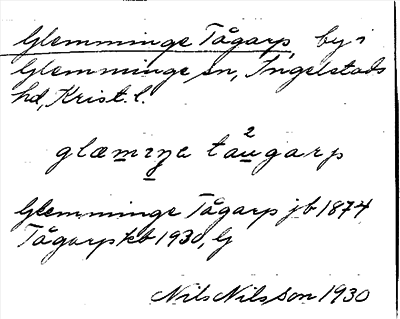 Glemminge Tågarp, by i
Glemminge sn, Ingelstads
hd, Krist. l.
glæmɪŋe ta²ugarp
Glemminge Tågarp jb 1874
Tågarp kb 1930, G
Nils Nilsson 1930